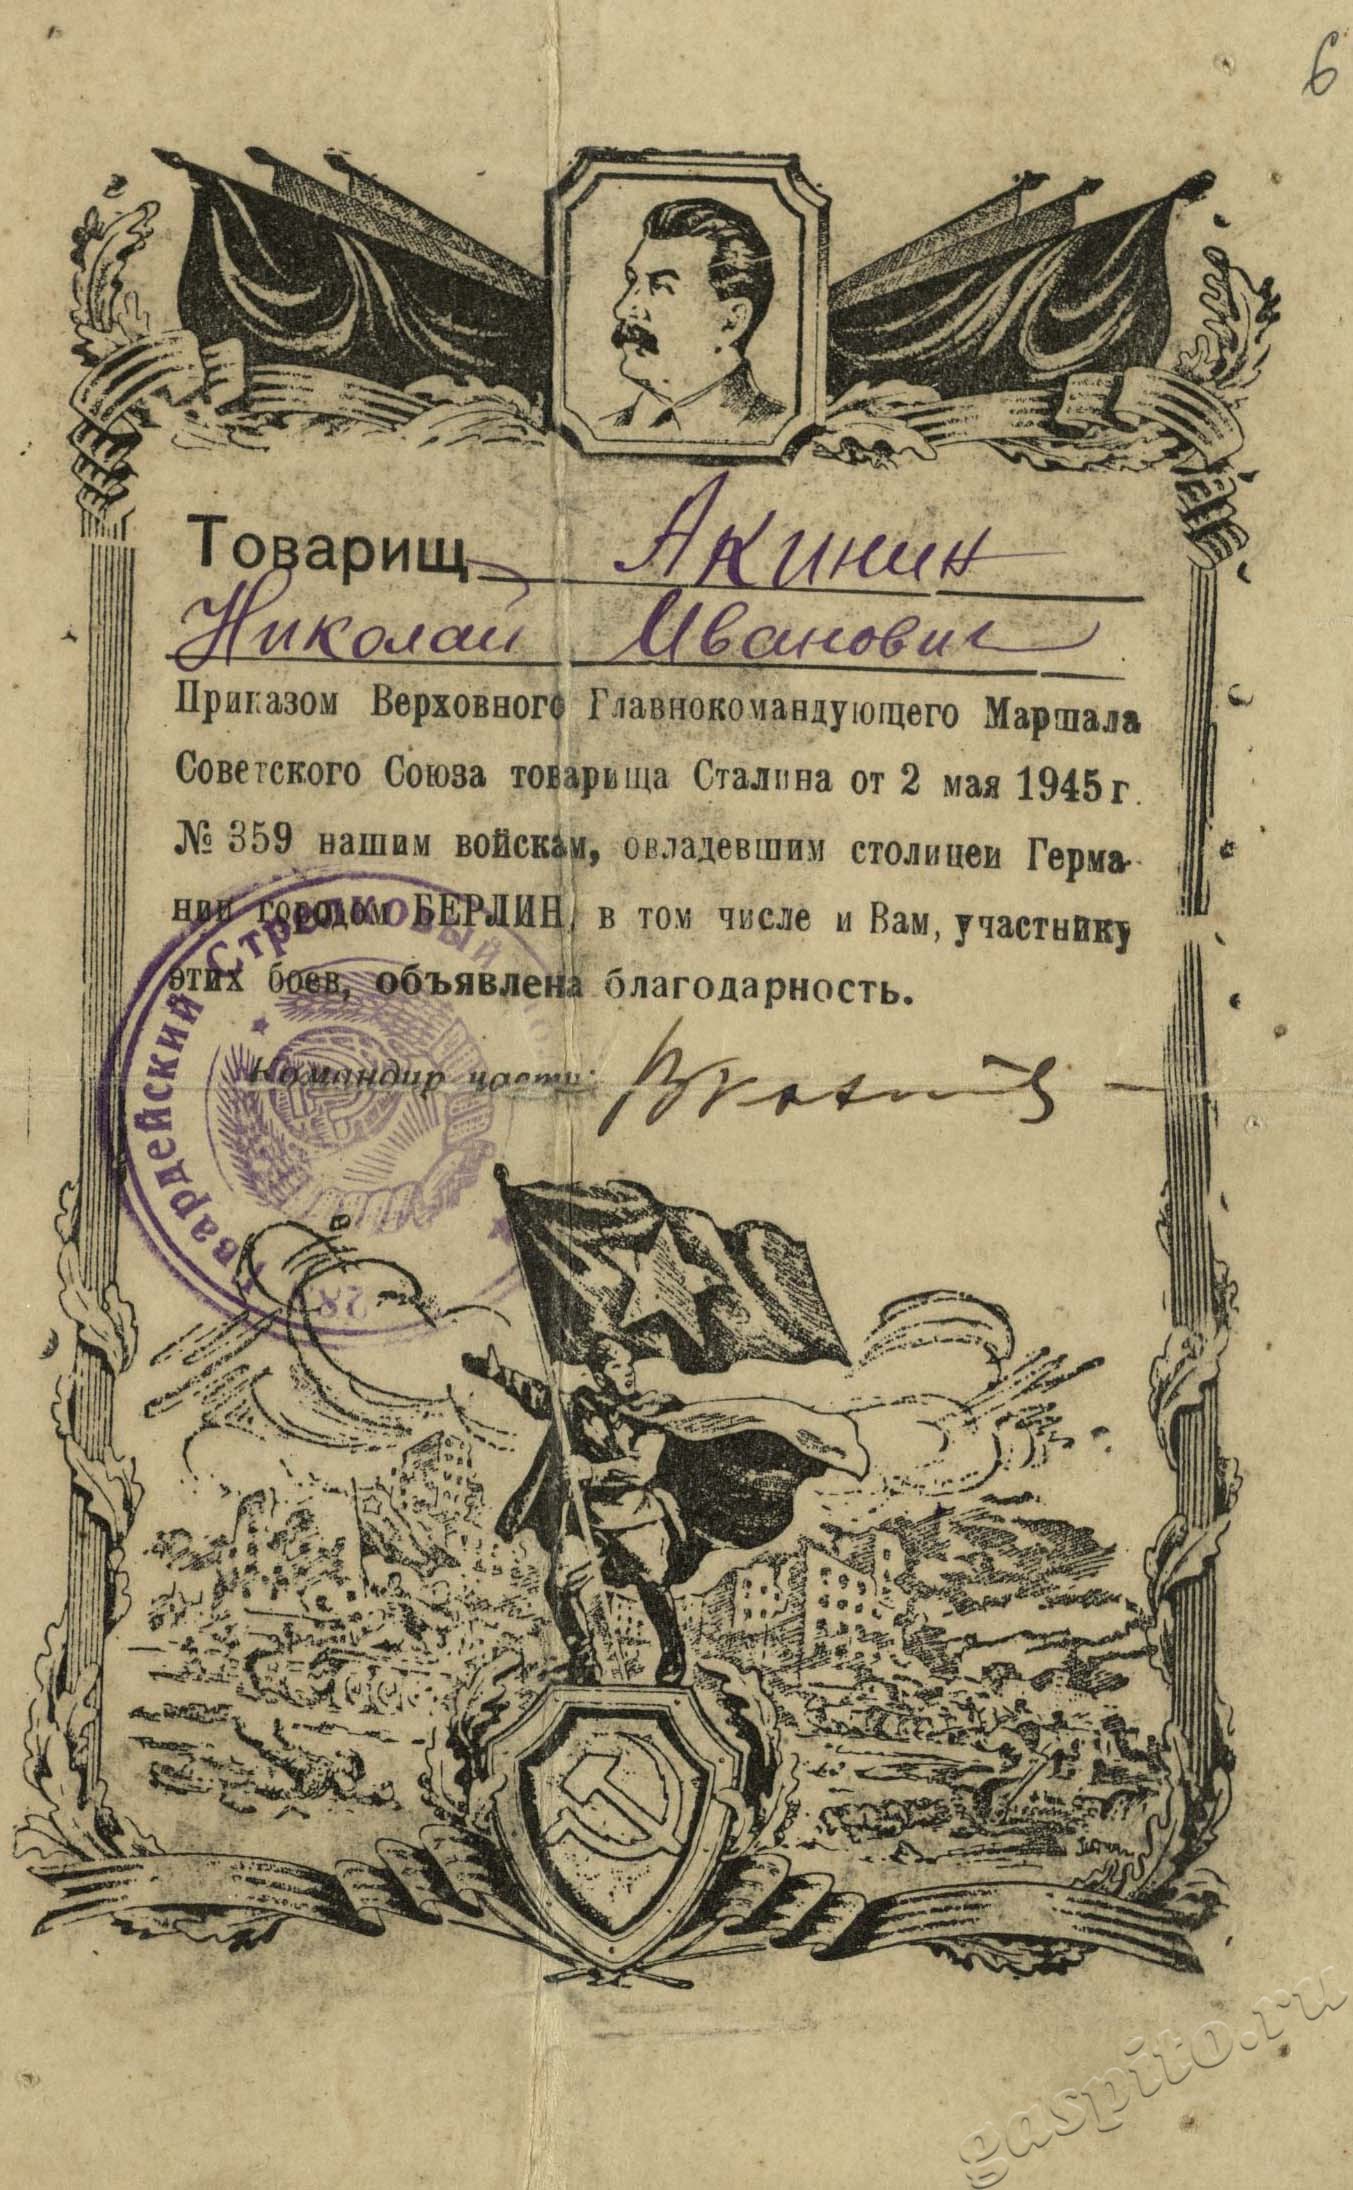 6
Товарищ Акинин
Николай Иванович
Приказом Верховного Главнокомандующего Маршала
Советского Союза товарища Сталина от 2 мая 1945 г.
№ 359 нашим войскам, овладевшим столицей Герма-
нии городом БЕРЛИН, в том числе и Вам, участнику
этих боев, объявлена благодарность.
Командир части:
Гвардейский Стрелковый
28
gaspito.ru